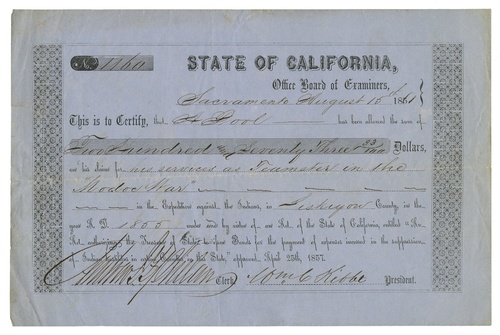 No. 1160
STATE OF CALIFORNIA,
Office Board of Examiners,
Sacramento August 18th 1861
This is to Certify, that H Pool has been allowed the sum of
Two Hundred & Seventy Three Dollars,
on his claims for his services as Teamster in the
"Modoc War"
in the Expedition against the Indians, in Siskiyou County, in the
year A. D. 1855 under and by virtue of an Act of the State of California, entitled "An
Act authorizing the Treasurer of State to issue Bonds for the payment of expenses incurred in the suppression
of Indian hostilities in certain Counties in this State," approved, April 25th, 1857.
Clerk. Wm C Kibbe President.